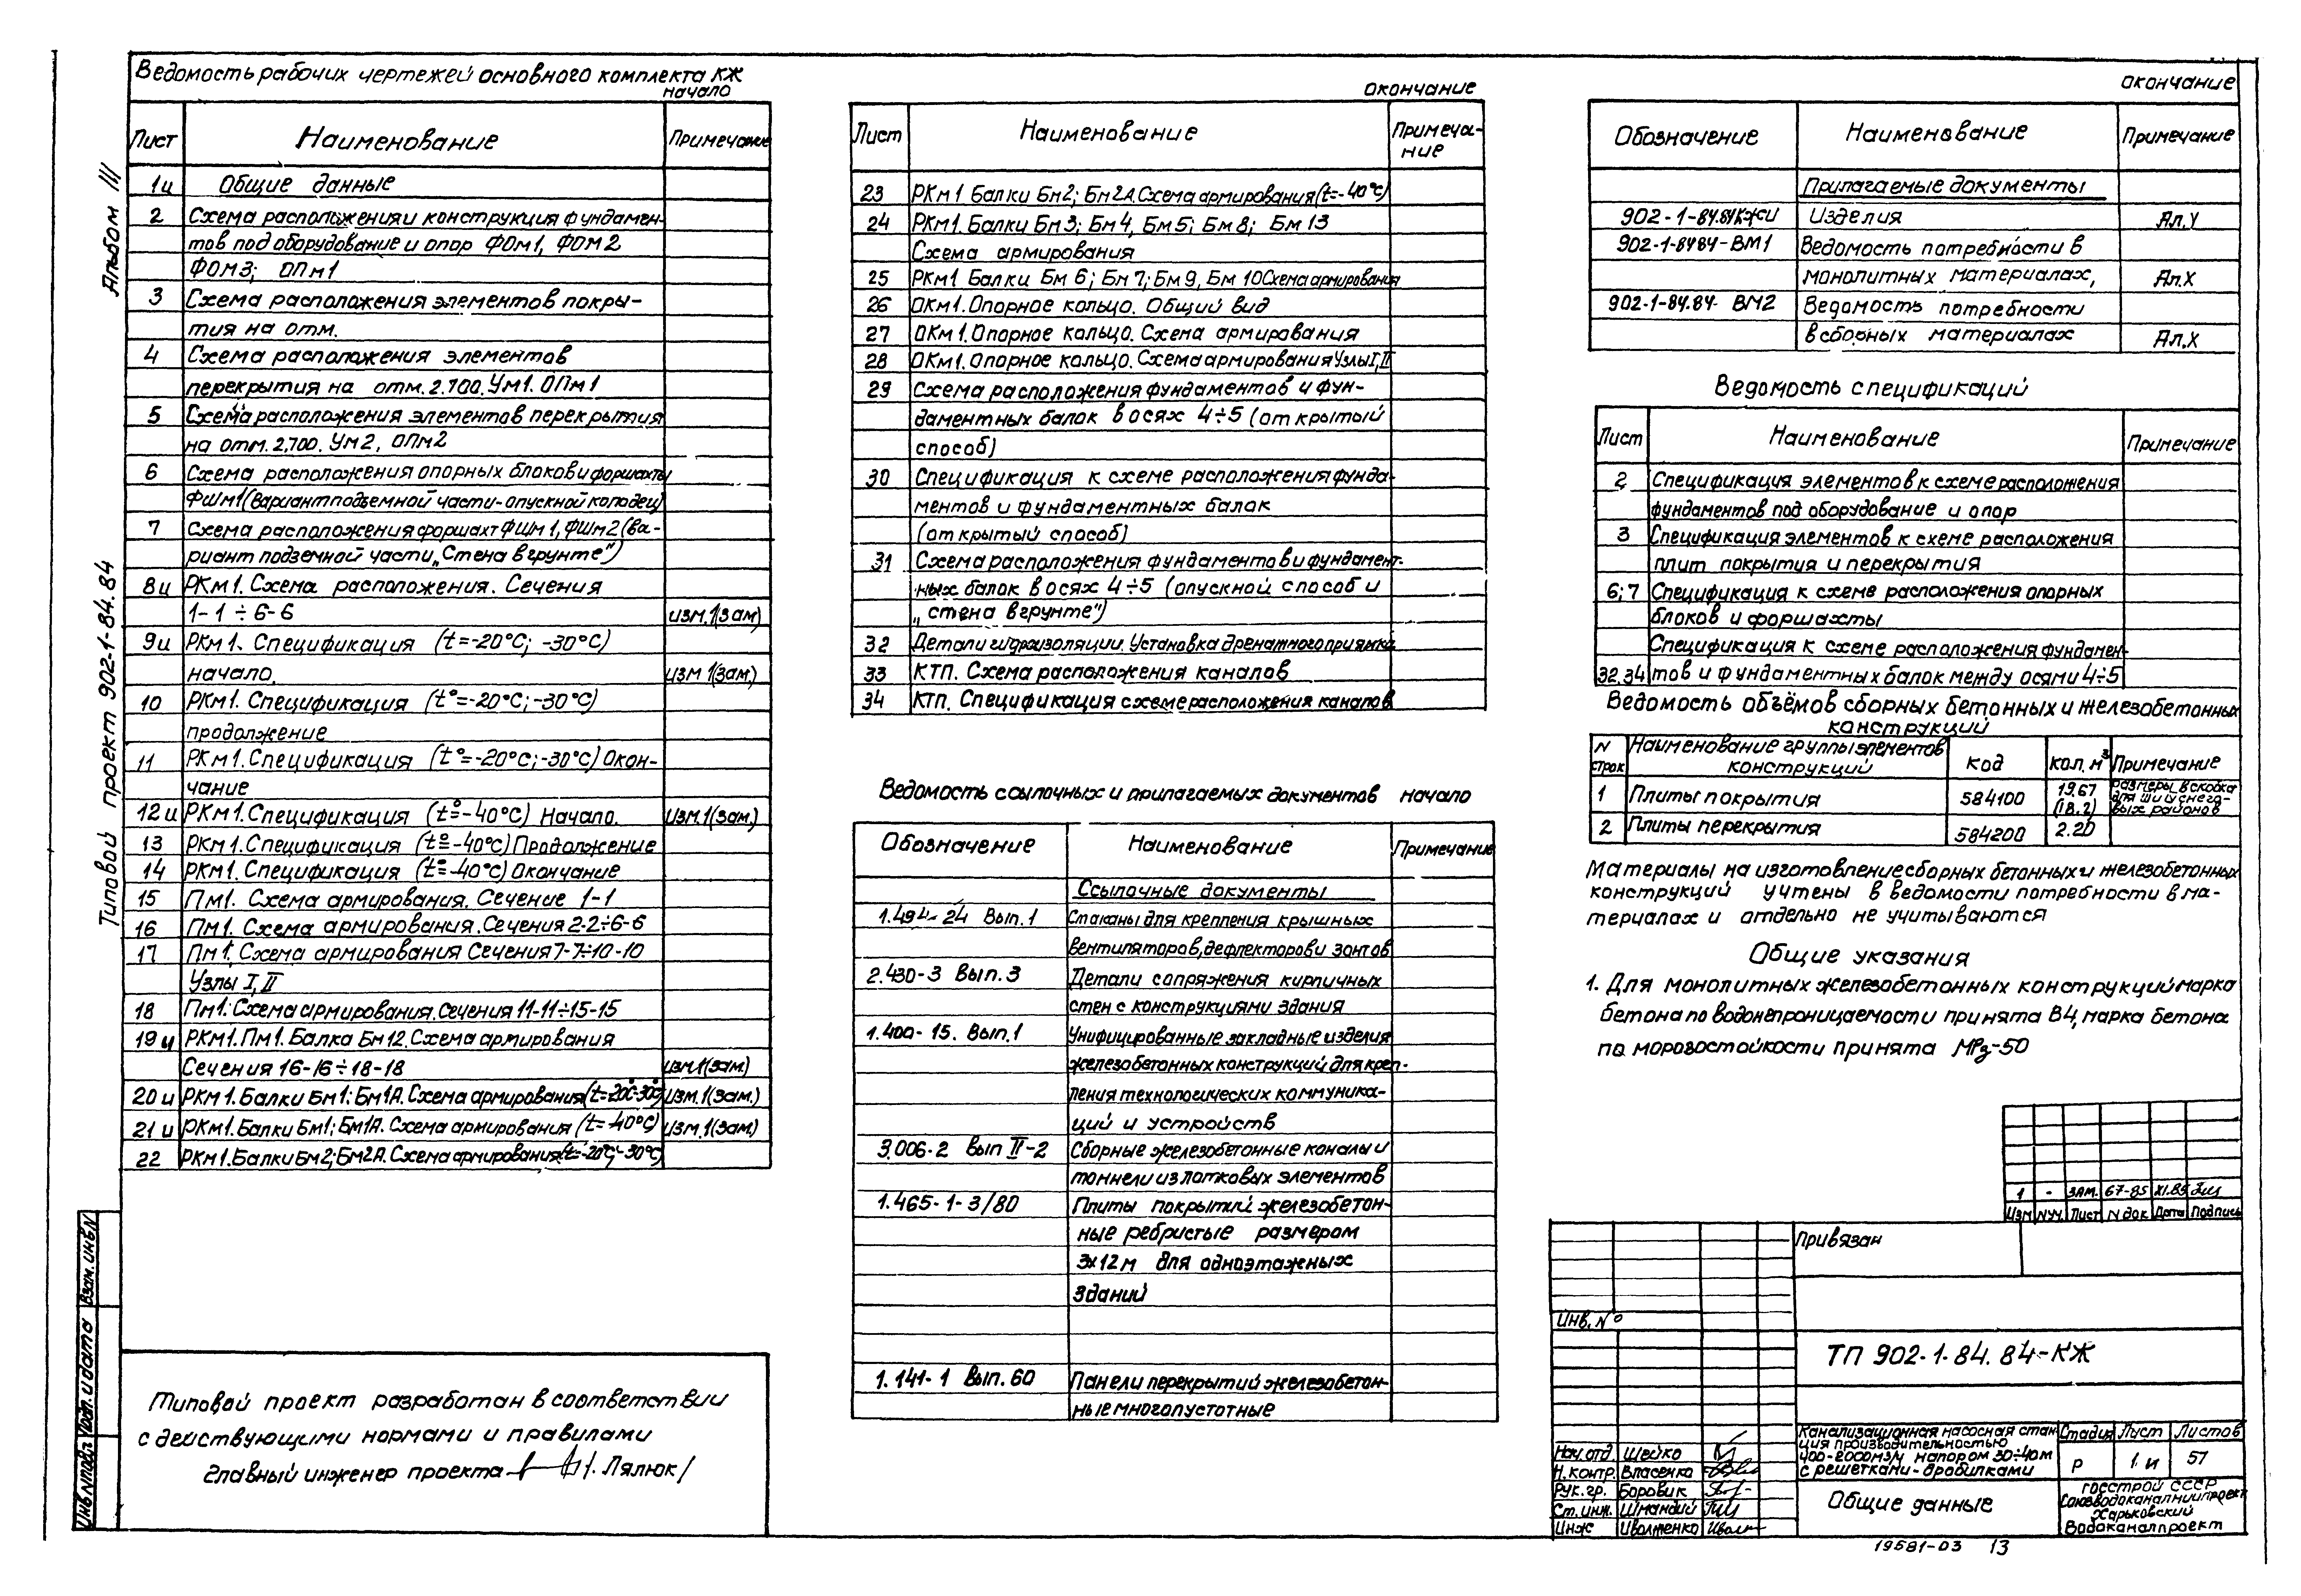 Альбом III
Типовой проект 902-1-84.84
Ведомость рабочих чертежей основного комплекта КЖ
начало
Лист Наименование Примечание
1и Общие данные
2 Схема расположения и конструкция фундамен-
тов под оборудование и опор ФОм1, ФОм2
ФОм3; ОПм1
3 Схема расположения элементов покры-
тия на отм.
4 Схема расположения элементов
перекрытия на отм. 2.700. Ум1. ОПм1
5 Схема расположения элементов перекрытия
на отм. 2,700. Ум2, ОПм2
6 Схема расположения опорных блоков и форшахты
ФШм1 (вариант подземной части-опускной колодец)
7 Схема расположения форшахт ФШм1, ФШм2 (ва-
риант подземной части „Стена в грунте")
8и РКм1. Схема расположения. Сечения
1-1 ÷ 6-6 изм.1(зам)
9и РКм1. Спецификация (t=-20°С; -30°С)
начало. изм 1(зам.)
10 РКм1. Спецификация (t°=-20°С; -30°С)
продолжение
11 РКм1. Спецификация (t°=-20°С; -30°С) Окон-
чание
12и РКм1. Спецификация (t°=-40°С) Начало. изм.1(зам.)
13 РКм1. Спецификация (t°=-40°С) Продолжение
14 РКм1. Спецификация (t°=-40°С) Окончание
15 Пм1. Схема армирования. Сечение 1-1
16 Пм1. Схема армирования. Сечения 2-2÷6-6
17 Пм1. Схема армирования Сечения 7-7÷10-10
Узлы I, II
18 Пм1. Схема армирования. Сечения 11-11÷15-15
19и РКм1. Пм1. Балка Бм12. Схема армирования
Сечения 16-16÷18-18 изм.1(зам.)
20и РКм1. Балки Бм1; Бм1А. Схема армирования (t=-20°С-30°С) изм.1(зам.)
21и РКм1. Балки Бм1; Бм1А. Схема армирования (t=-40°С) изм.1(зам)
22 РКм1. Балки Бм2; Бм2А. Схема армирования (t=-20°С; -30°С)
Типовой проект разработан в соответствии
с действующими нормами и правилами
Главный инженер проекта /. Лялюк/
Инв.№подл. Подп. и дата Взам. инв.N
окончание
Лист Наименование Примеча-
ние
23 РКм1 Балки Бм2; Бм2А. Схема армирования (t=-40°С)
24 РКм1. Балки Бм3; Бм4, Бм5; Бм8; Бм13
Схема армирования
25 РКм1 Балки Бм6; Бм7; Бм9, Бм10 Схема армирования
26 ОКм1. Опорное кольцо. Общий вид
27 ОКм1. Опорное кольцо. Схема армирования
28 ОКм1. Опорное кольцо. Схема армирования Узлы I, II
29 Схема расположения фундаментов и фун-
даментных балок в осях 4÷5 (открытый
способ)
30 Спецификация к схеме расположения фунда-
ментов и фундаментных балок
(открытый способ)
31 Схема расположения фундаментов и фундамент-
ных балок в осях 4÷5 (опускной способ и
„стена в грунте")
32 Детали гидроизоляции. Установка дренажного приямка
33 КТП. Схема расположения каналов
34 КТП. Спецификация с схеме расположения каналов
Ведомость ссылочных и прилагаемых документов начало
Обозначение Наименование Примечание
Ссылочные документы
1.494-24 Вып.1 Стаканы для крепления крышных
вентиляторов, дефлекторов и зонтов
2.430-3 Вып.3 Детали сопряжения кирпичных
стен с конструкциями здания
1.400-15. Вып.1 Унифицированные закладные изделия
железобетонных конструкций для креп-
ления технологических коммуника-
ций и устройств
3.006-2 Вып II-2 Сборные железобетонные каналы и
тоннели из лотковых элементов
1.465-1-3/80 Плиты покрытий железобетон-
ные ребристые размером
3х12м для одноэтажных
зданий
1.141-1 Вып.60 Панели перекрытий железобетон-
ные многопустотные
окончание
Обозначение Наименование Примечание
Прилагаемые документы
902-1-84.84КЖИ Изделия Ал.V
902-1-84 84-ВМ1 Ведомость потребности в
монолитных материалах, Ал.X
902-1-84.84-ВМ2 Ведомость потребности
в сборных материалах Ал.X
Ведомость спецификаций
Лист Наименование Примечание
2 Спецификация элементов к схеме расположения
фундаментов под оборудование и опор
3 Спецификация элементов к схеме расположения
плит покрытия и перекрытия
6; 7 Спецификация к схеме расположения опорных
блоков и форшахты
Спецификация к схеме расположения фундамен-
32.34 тов и фундаментных балок между осями 4÷5
Ведомость объёмов сборных бетонных и железобетонных
конструкций
N строк Наименование группы элементов конструкций Код Кол. м³ Примечание
1 Плиты покрытия 584100 19.67 (18.2) Размеры в скобках для ш и снего- вых районов
2 Плиты перекрытия 584200 2.20
Материалы на изготовление сборных бетонных и железобетонных
конструкций учтены в ведомости потребности в ма-
териалах и отдельно не учитываются
Общие указания
1. Для монолитных железобетонных конструкций марка
бетона по водонепроницаемости принята В4, марка бетона
по морозостойкости принята МРз-50
1 - ЗАМ. 67-85 XI.85
Изм N уч. Лист N док. Дата Подпись
Привязан
Инв. N°
ТП 902-1-84.84-КЖ
Канализационная насосная стан-
ция производительностью
400-2000м3/ч напором 30÷40м
с решетками-дробилками
Стадия Лист Листов
Р 1.и 57
Нач.отд. Шейко
Н.контр. Власенко
Рук.гр. Боровик
Ст.инж. Шмандий
Инж Иволженко
Общие данные
Госстрой СССР
Союзводоканалниипроект
Харьковский
Водоканалпроект
19581-03 13